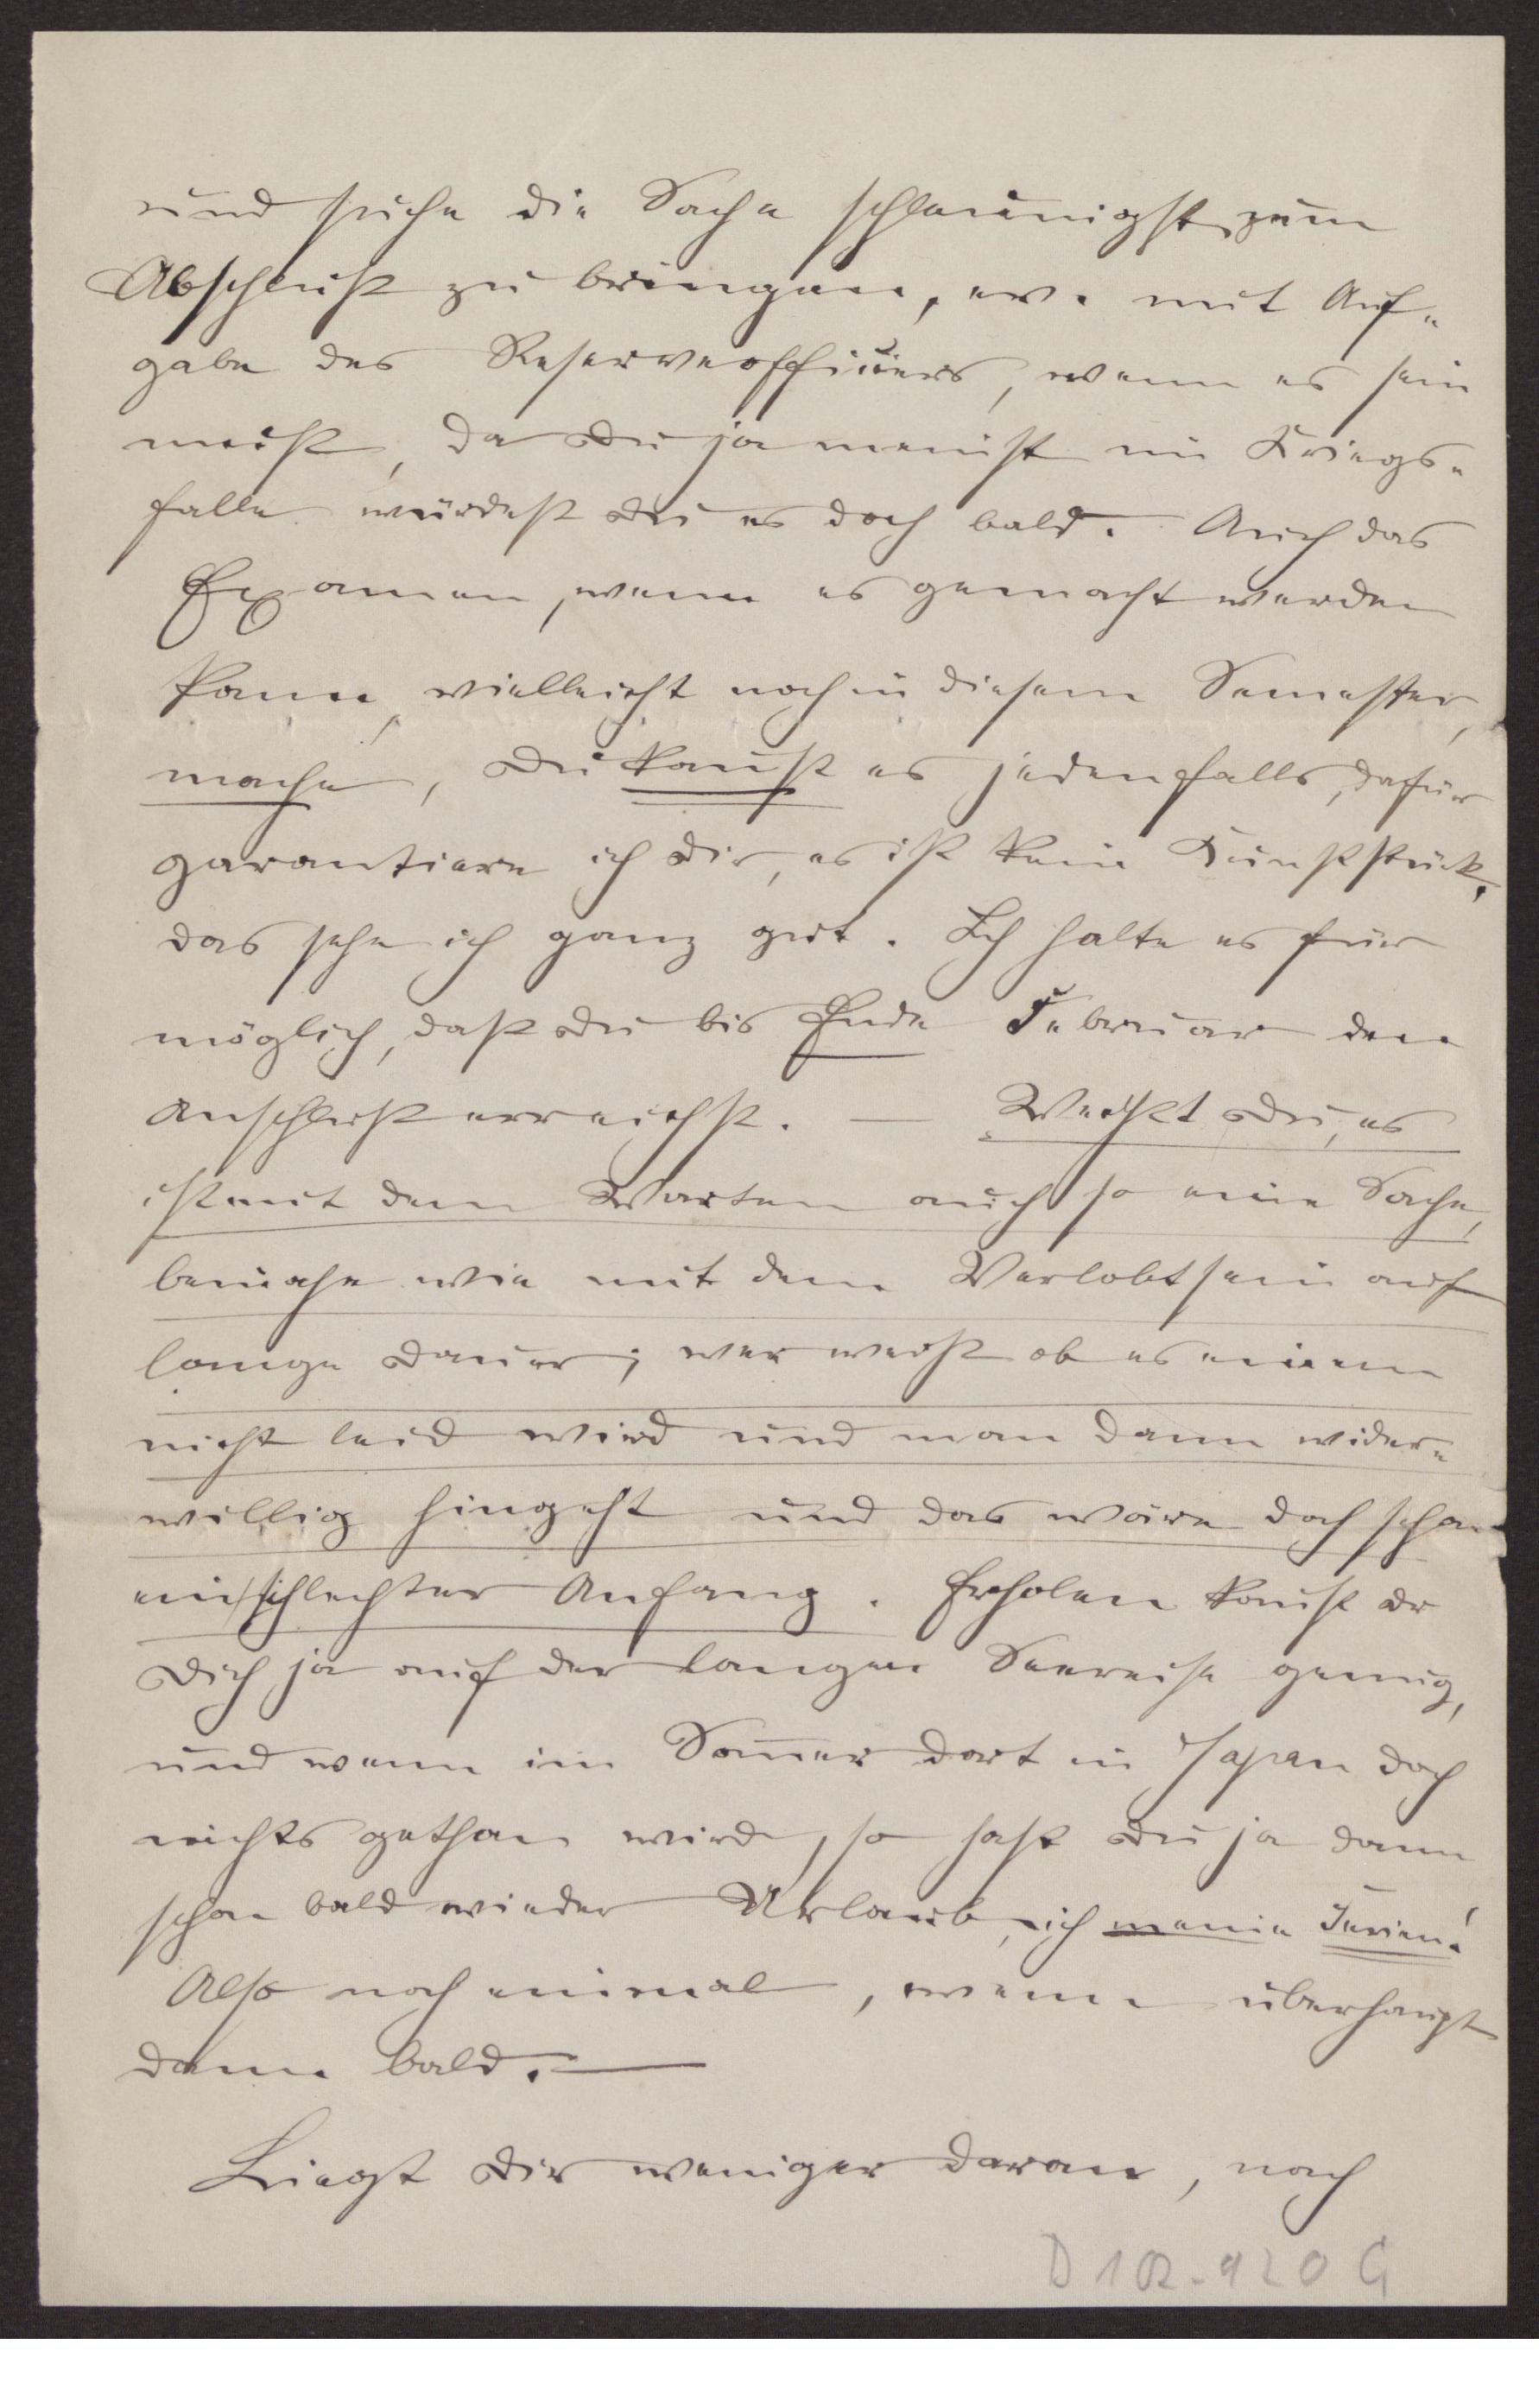 und suche die Sache schleunigst zum
Abschluß zu bringen, ev. mit Auf-
gabe des Reserveofficiers, wenn es sein
muß, da Du ja meinst im Kriegs-
falle würdest Du es doch bald. Auch das
Examen, wenn es gemacht werden
kann, vielleicht noch in diesem Semester,
mache, Du kannst es jedenfalls, dafür
garantiere ich Dir, es ist kein Kunststück,
das sehe ich ganz gut. Ich halte es für
möglich, daß Du bis Ende Februar den
Anschluß erreichst. — Weißt Du, es
ist mit dem Warten auch so eine Sache,
beinahe wie mit dem Verlobtsein auf
lange Dauer; wer weiß ob es einem
nicht leid wird und man dann wider-
willig hingeht und das wäre doch schon
ein schlechter Anfang. Erholen kannst Du
Dich ja auf der langen Seereise genug,
und wenn im Sommer dort in Japan doch
nichts gethan wird, so hast Du ja dann
schon bald wieder Urlaub, ich meine Ferien!
Also noch einmal, wenn überhaupt
dann bald. —
Liegt Dir weniger daran, nach
D 102-920 G